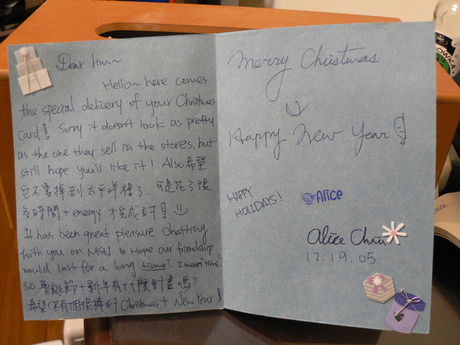 Dear
Hello~ here comes
the special delivery of your Christmas
Card! Sorry it doesn't look as pretty
as the one they sell in the stores, but
still hope you'll like it! Also 希望
它不會掉到太 了, 可是花了很
多時間 + energy 才完成的
It has been great pleasure chatting
with you on MSN & Hope our friendship
would last for a long time! I meant time!
so 聖誕節 + 新年有什麼計畫嗎?
希望 有個很棒的 Christmas + New Year!
Merry Christmas
Happy New Year!
HAPPY
HOLIDAYS!
Alice
Alice
12.19.05